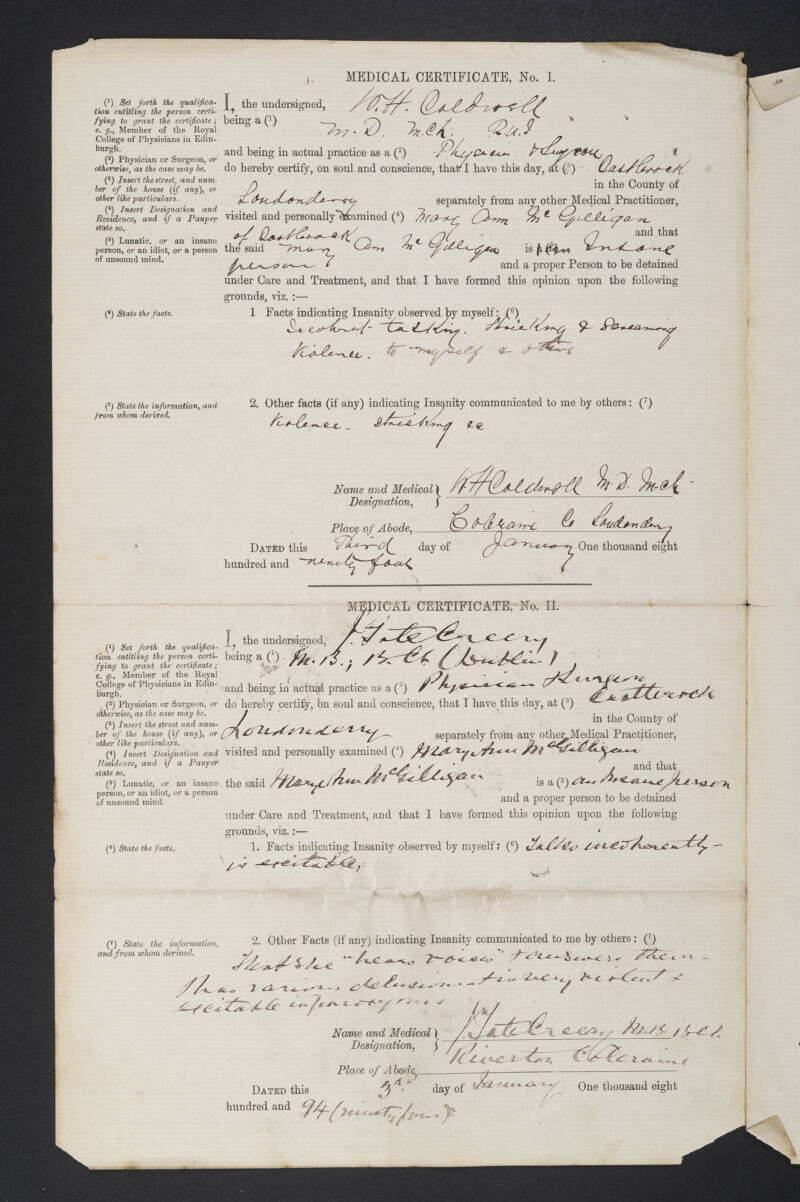 MEDICAL CERTIFICATE, No. I.
(¹) Set forth the qualifica-
tion entitling the person certi-
fying to grant the certificate;
e. g., Member of the Royal
College of Physicians in Edin-
burgh.
(²) Physician or Surgeon, or
otherwise, as the case may be.
(³) Insert the street, and num-
ber of the house (if any), or
other like particulars.
(⁴) Insert Designation and
Residence, and if a Pauper
state so.
(⁵) Lunatic, or an insane
person, or an idiot, or a person
of unsound mind.
I, the undersigned, W. H. Caldwell
being a (¹) M. D. M.Ch. R.U.I
and being in actual practice as a (²) Physician & Surgeon
do hereby certify, on soul and conscience, that I have this day, at (³) Castlerock
in the County of
Londonderry separately from any other Medical Practitioner,
visited and personally examined (⁴) Mary Ann McGilligan
of Castlerock and that
the said Mary Ann McGilligan is an Insane
person and a proper Person to be detained
under Care and Treatment, and that I have formed this opinion upon the following
grounds, viz. :—
(⁶) State the facts.
1 Facts indicating Insanity observed by myself: (⁶)
Incoherent talking. Striking & Screaming
Violence. to myself & others
(⁷) State the information, and
from whom derived.
2. Other facts (if any) indicating Insanity communicated to me by others: (⁷)
Violence. Striking &c
Name and Medical Designation, WH Caldwell M. D. M.Ch.
Place of Abode, Colraine Co Londonderry
DATED this Third day of January One thousand eight
hundred and ninety four
MEDICAL CERTIFICATE, No. II.
(¹) Set forth the qualifica-
tion entitling the person certi-
fying to grant the certificate;
e. g., Member of the Royal
College of Physicians in Edin-
burgh.
(²) Physician or Surgeon, or
otherwise, as the case may be.
(³) Insert the street and num-
ber of the house (if any), or
other like particulars.
(⁴) Insert Designation and
Residence, and if a Pauper
state so.
(⁵) Lunatic, or an insane
person, or an idiot, or a person
of unsound mind.
I, the undersigned, J. Tate Creery
being a (¹) M.B.; B.Ch (Dublin)
and being in actual practice as a (²) Physician & Surgeon
do hereby certify, on soul and conscience, that I have this day, at (³) Castlerock
in the County of
Londonderry separately from any other Medical Practitioner,
visited and personally examined (⁴) Mary Ann McGilligan
and that
the said Mary Ann McGilligan is a (⁵) an Insane person
and a proper person to be detained
under Care and Treatment, and that I have formed this opinion upon the following
grounds, viz. :—
(⁶) State the facts.
1. Facts indicating Insanity observed by myself: (⁶) Talks incoherently –
is excitable,
(⁷) State the information,
and from whom derived.
2. Other Facts (if any) indicating Insanity communicated to me by others: (⁷)
That she "hears voices" & answers them –
has various delusions – & is very violent &
excitable in paroxysms
Name and Medical Designation, J. Tate Creery M.B. B.Ch.
Riverton Coleraine
Place of Abode,
DATED this 3rd day of January One thousand eight
hundred and 94 (ninety four).